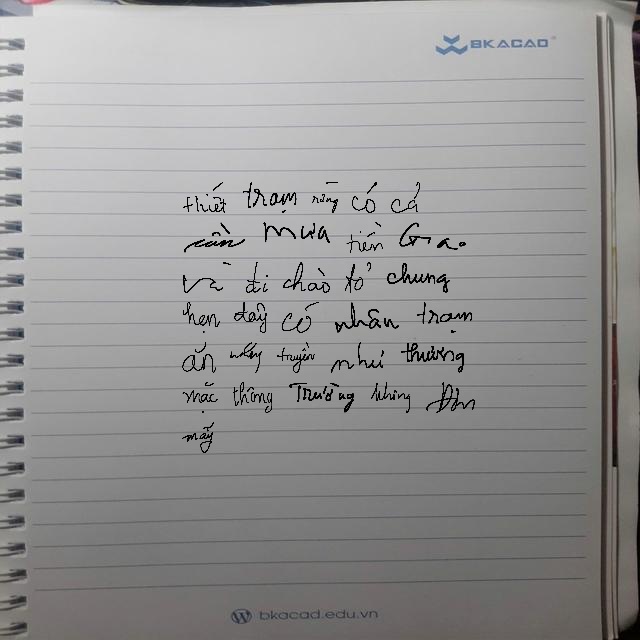 BKACAD
thiết trạm rằng có cả
cần mưa tiền Gia.
và đi chào tổ chung
hẹn dậy có nhân trạm
ăn truyền như thương
mặc thông Trường không
mấy
bkacad.edu.vn